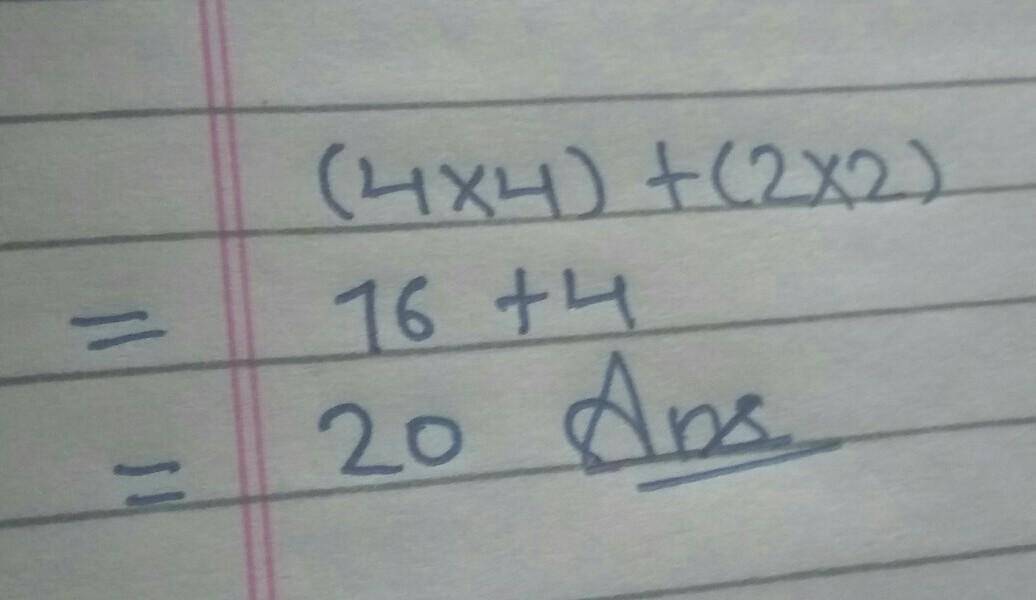 (4×4) + (2×2)
= 16 + 4
= 20 Ans